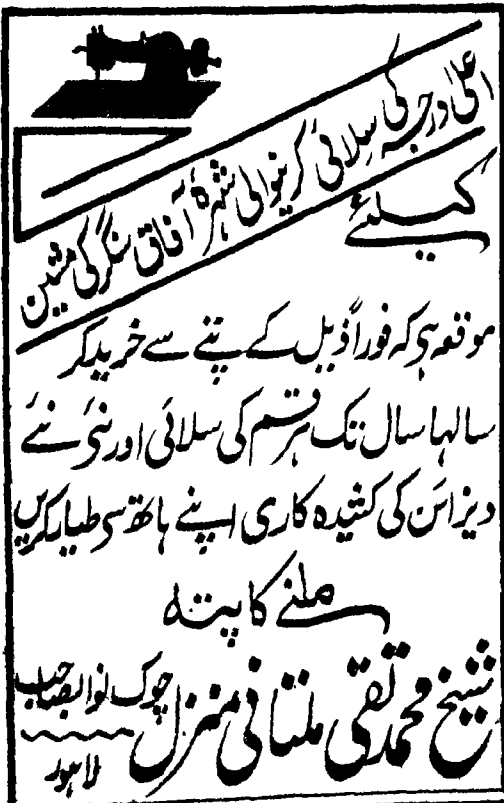 اعلیٰ درجہ کی سلائی کرینوالی شہرۂ آفاق سنگر کی مشین
کیلئے
موقعہ ہی کہ فوراً ذیل کے پتے سے خرید کر
سالہا سال تک ہر قسم کی سلائی اور نئی نئے
دیزائن کی کشیدہ کاری اپنے ہاتھ سی طیار کریں
ملنے کا پتہ
شیخ محمد تقی ملتانی منزل چوک نواب صاحب
لاہور